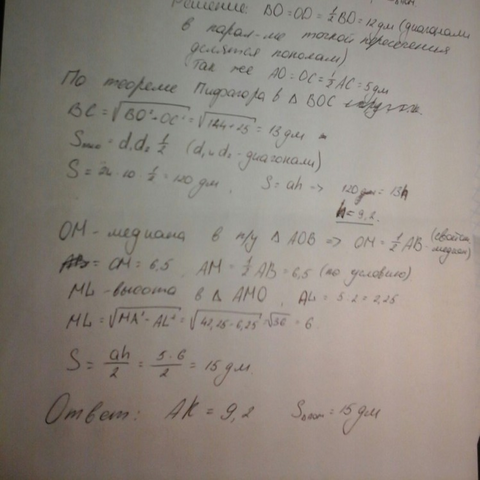 Решение: BO=OD=½BD=12дм (диагонали
в парал-ме точкой пересечения
делятся пополам)
Так же AO=OC=½AC=5дм
По теореме Пифагора в Δ BOC
BC=√BO²-OC²=√144+25=13дм
S=d₁d₂½ (d₁ и d₂-диагонали)
S=24·10½=120дм, S=ah=> 120дм=13h
h=9,2.
OM-медиана в п/у ΔAOB=>OM=½AB (свойство медиан)
=OM=6,5, AM=½AB=6,5 (по условию)
ML-высота в ΔAMO, AL=5:2=2,25
ML=√MA²-AL²=√42,25-6,25=√36=6
S=ah/2=5·6/2=15дм
Ответ: AK=9,2 S=15дм